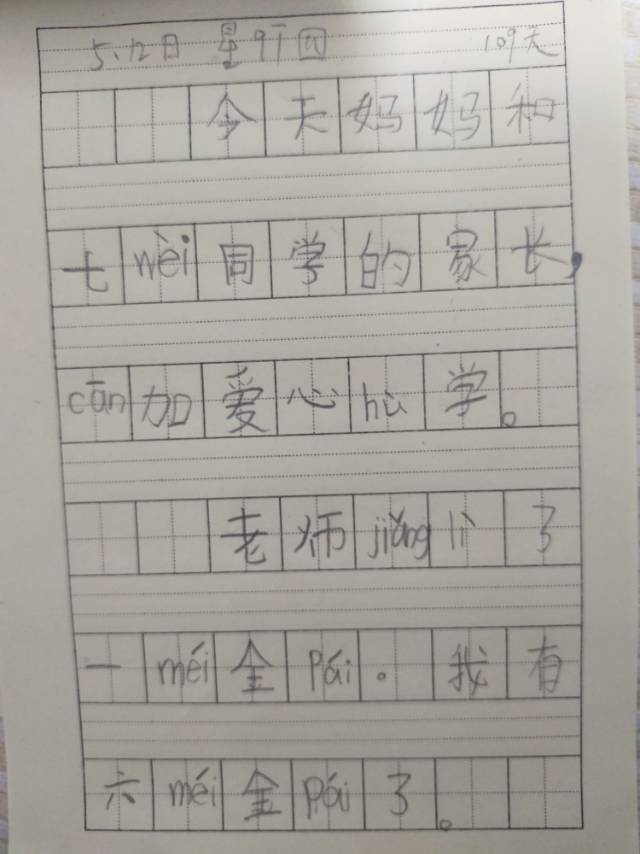 5.12日 星qī四 109天
今天妈妈和
七wèi同学的家长,
cān加爱心hù学。
老师jiǎng lì了
一méi金pái。我有
六méi金pái了。